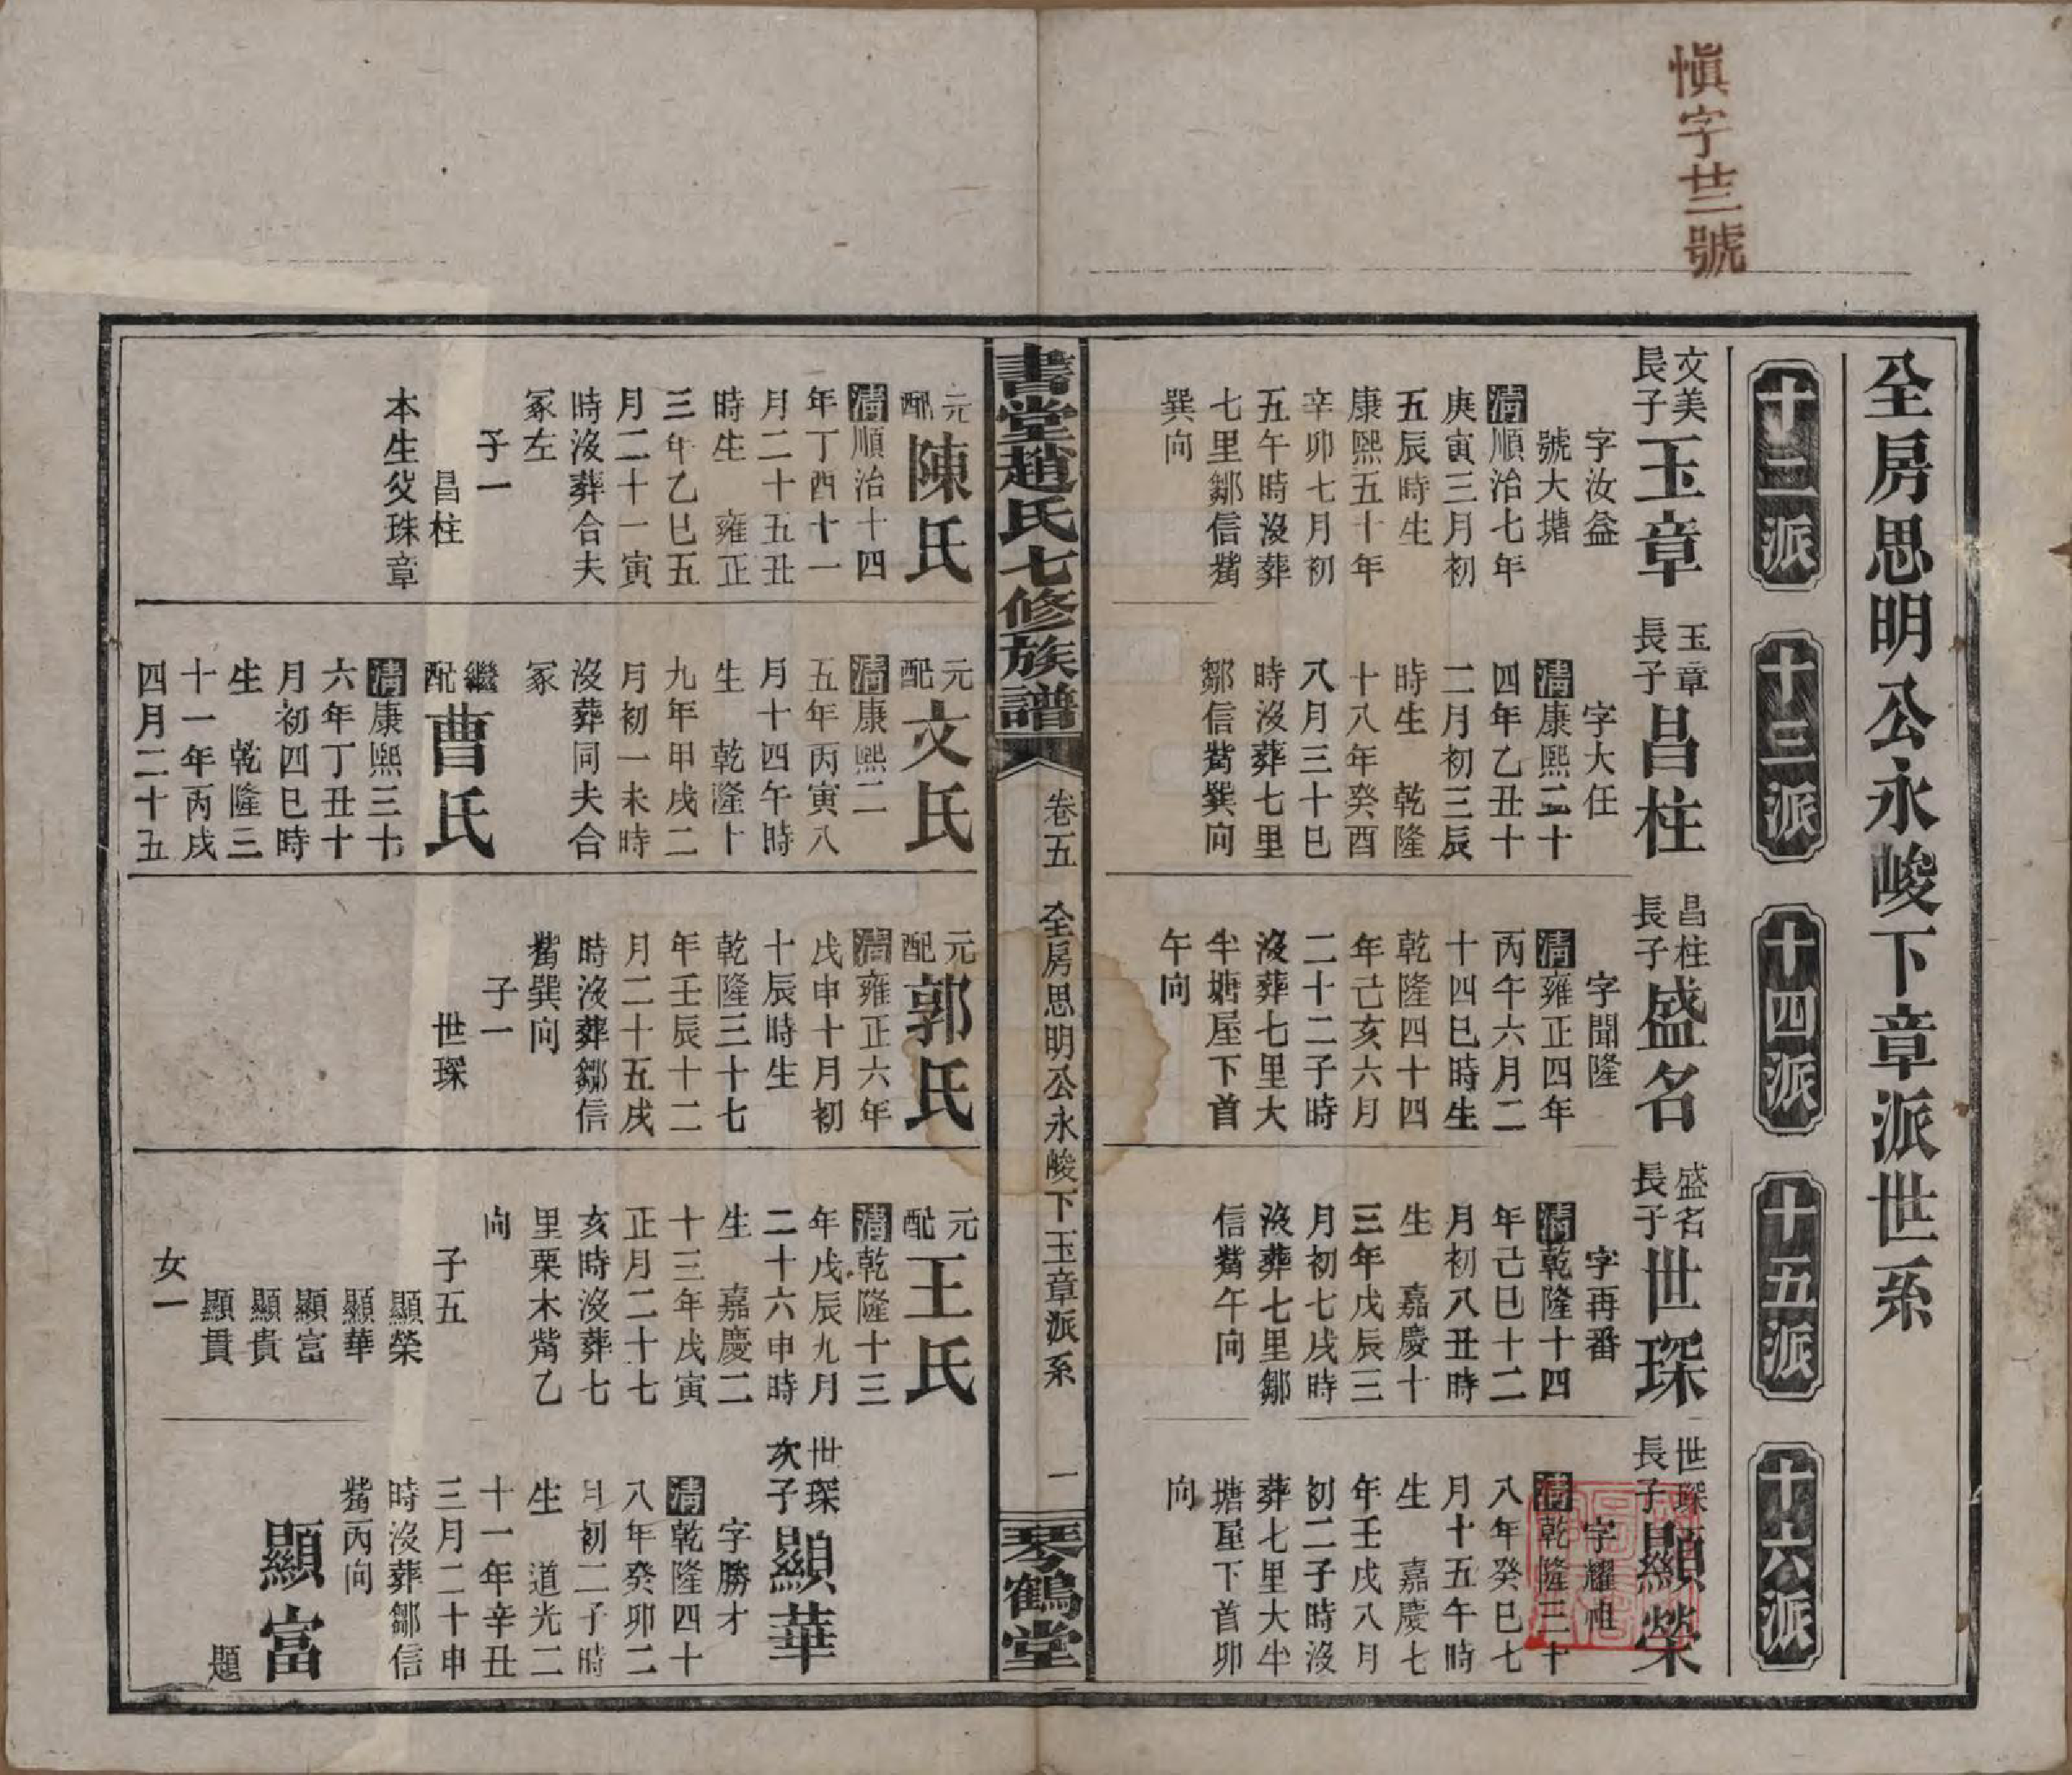 愼字廿三號
全房思明公永峻下章派世系
十二派
十三派
十四派
十五派
十六派
文美
長子
玉章
字汝益
號大塘
清順治七年
庚寅三月初
五辰時生
康熙五十年
辛卯七月初
五午時沒葬
七里鄒信觜
巽向
玉章
長子
昌柱
字大任
清康熙二十
四年乙丑十
二月初三辰
時生　乾隆
十八年癸酉
八月三十巳
時沒葬七里
鄒信觜巽向
昌柱
長子
盛名
字聞隆
清雍正四年
丙午六月二
十四巳時生
乾隆四十四
年己亥六月
二十二子時
沒葬七里大
坐塘屋下首
午向
盛名
長子
世琛
字再番
清乾隆十四
年己巳十二
月初八丑時
生　嘉慶十
三年戊辰三
月初七戌時
沒葬七里鄒
信觜午向
世琛
長子
顯榮
字耀
清乾隆三十
八年癸巳七
月十五午時
生　嘉慶七
年壬戌八月
初二子時沒
葬七里大坐
塘屋下首卯
向
書堂趙氏七修族譜
卷五　全房思明公永峻下玉章派系　一
琴鶴堂
元
配
陳氏
清順治十四
年丁酉十一
月二十五丑
時生　雍正
三年乙巳五
月二十一寅
時沒葬合夫
冢左
子一
昌柱
本生父珠章
元
配
文氏
清康熙二
五年丙寅八
月十四午時
生　乾隆十
九年甲戌二
月初一未時
沒葬同夫合
冢
繼
配
曹氏
清康熙三十
六年丁丑十
月初四巳時
生　乾隆三
十一年丙戌
四月二十五
元
配
郭氏
清雍正六年
戊申十月初
十辰時生
乾隆三十七
年壬辰十二
月二十五戌
時沒葬鄒信
觜巽向
子一
世琛
元
配
王氏
清乾隆十三
年戊辰九月
二十六申時
生　嘉慶二
十三年戊寅
正月二十七
亥時沒葬七
里栗木觜乙
向
子五
顯榮
顯華
顯富
顯貴
顯貫
女一
世琛
次子
顯華
字勝才
清乾隆四十
八年癸卯二
月初二子時
生　道光二
十一年辛丑
三月二十申
時沒葬鄒信
觜丙向
顯富
題